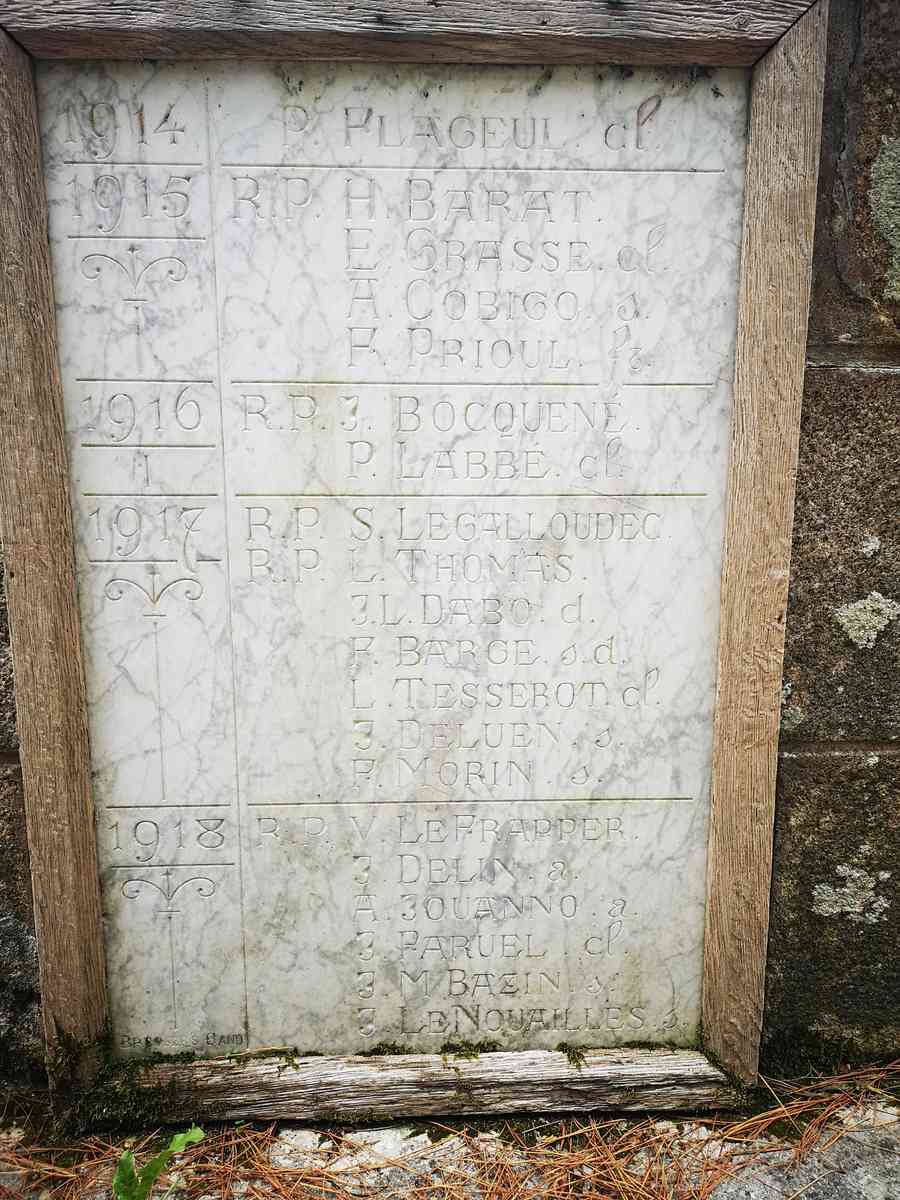 1914 P. PLAGEUL. cl.
1915 R.P. H. BARAT.
E. GRASSE. cl.
A. COBIGO. s.
F. PRIOUL. fz.
1916 R.P. J. BOCQUENÉ.
P. LABBÉ. cl
1917 R.P. S. LEGALLOUDEC.
R.P. L. THOMAS.
J.L. DABO. d.
F. BARGE. s.d.
L. TESSEROT. cl.
J. DELUEN. s.
P. MORIN. s.
1918 R.P. V. LEFRAPPER.
J. DELIN. a.
A. JOUANNO. a.
J. PARUEL. cl.
J. M. BAZIN. s.
J. LENOUAILLES. s.